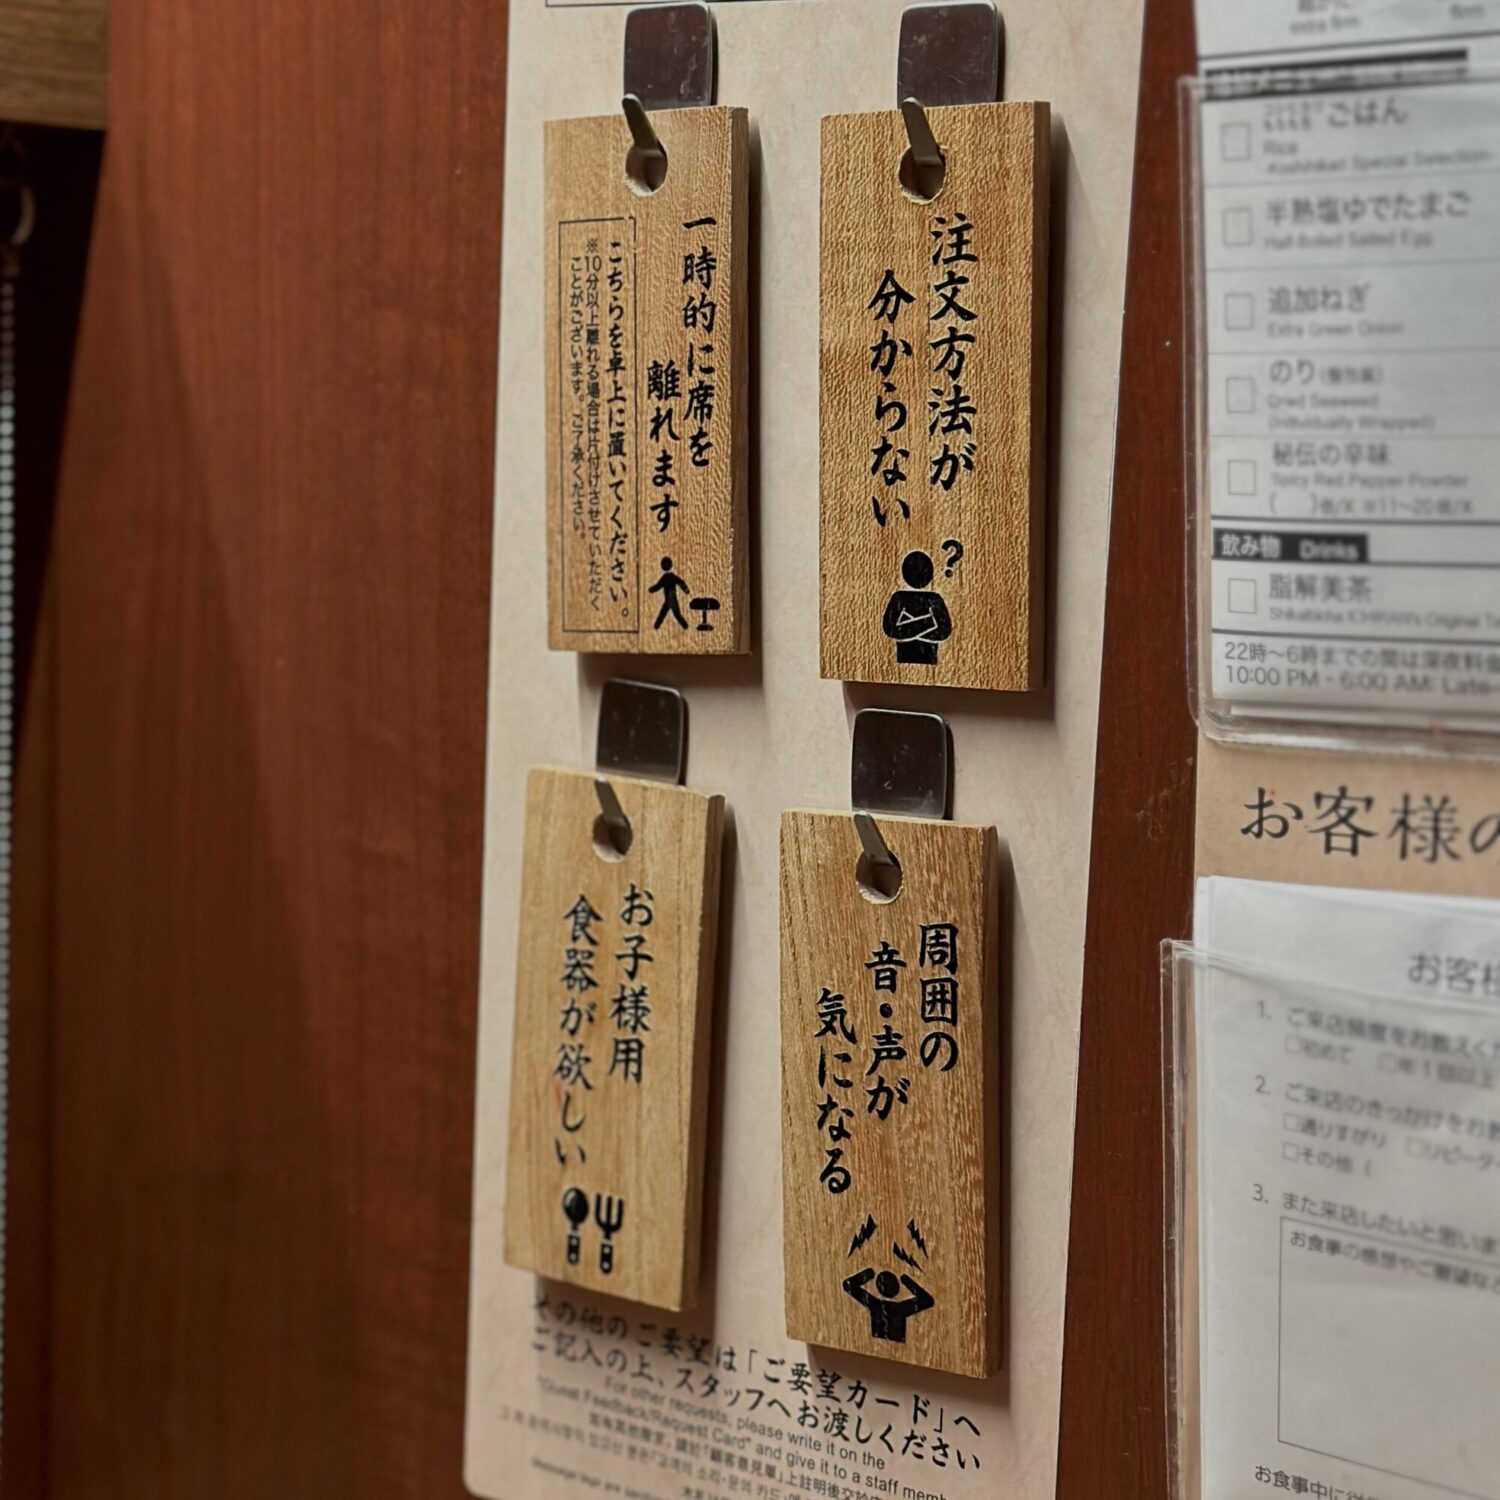 一時的に席を
離れます
こちらを卓上に置いてください。
※10分以上離れる場合は片付けさせていただく
ことがございます。ご了承ください。
注文方法が
分からない
?
お子様用
食器が欲しい
周囲の
音・声が
気になる
その他のご要望は「ご要望カード」へ
ご記入の上、スタッフへお渡しください
For other requests, please write it on the
"Guest Feedback/Request Card" and give it to a staff memb
extra firm
firm
ごはん
Rice
-Koshihikari Special Selection-
半熟塩ゆでたまご
Half-Boiled Salted Egg
追加ねぎ
Extra Green Onion
のり(個包装)
Dried Seaweed
(Individually Wrapped)
秘伝の辛味
Spicy Red Pepper Powder
( )倍/X ※11~20倍/X
飲み物 Drinks
脂解美茶
Shikaibicha ICHIRAN's Original Te
22時~6時までの間は深夜料
10:00 PM - 6:00 AM: Late-
お客様の
お客様
1. ご来店頻度をお教えく
□初めて □年1回以上
2. ご来店のきっかけをお教
□通りすがり □リピータ
□その他(
3. また来店したいと思いま
お食事の感想やご要望など
お食事中に従